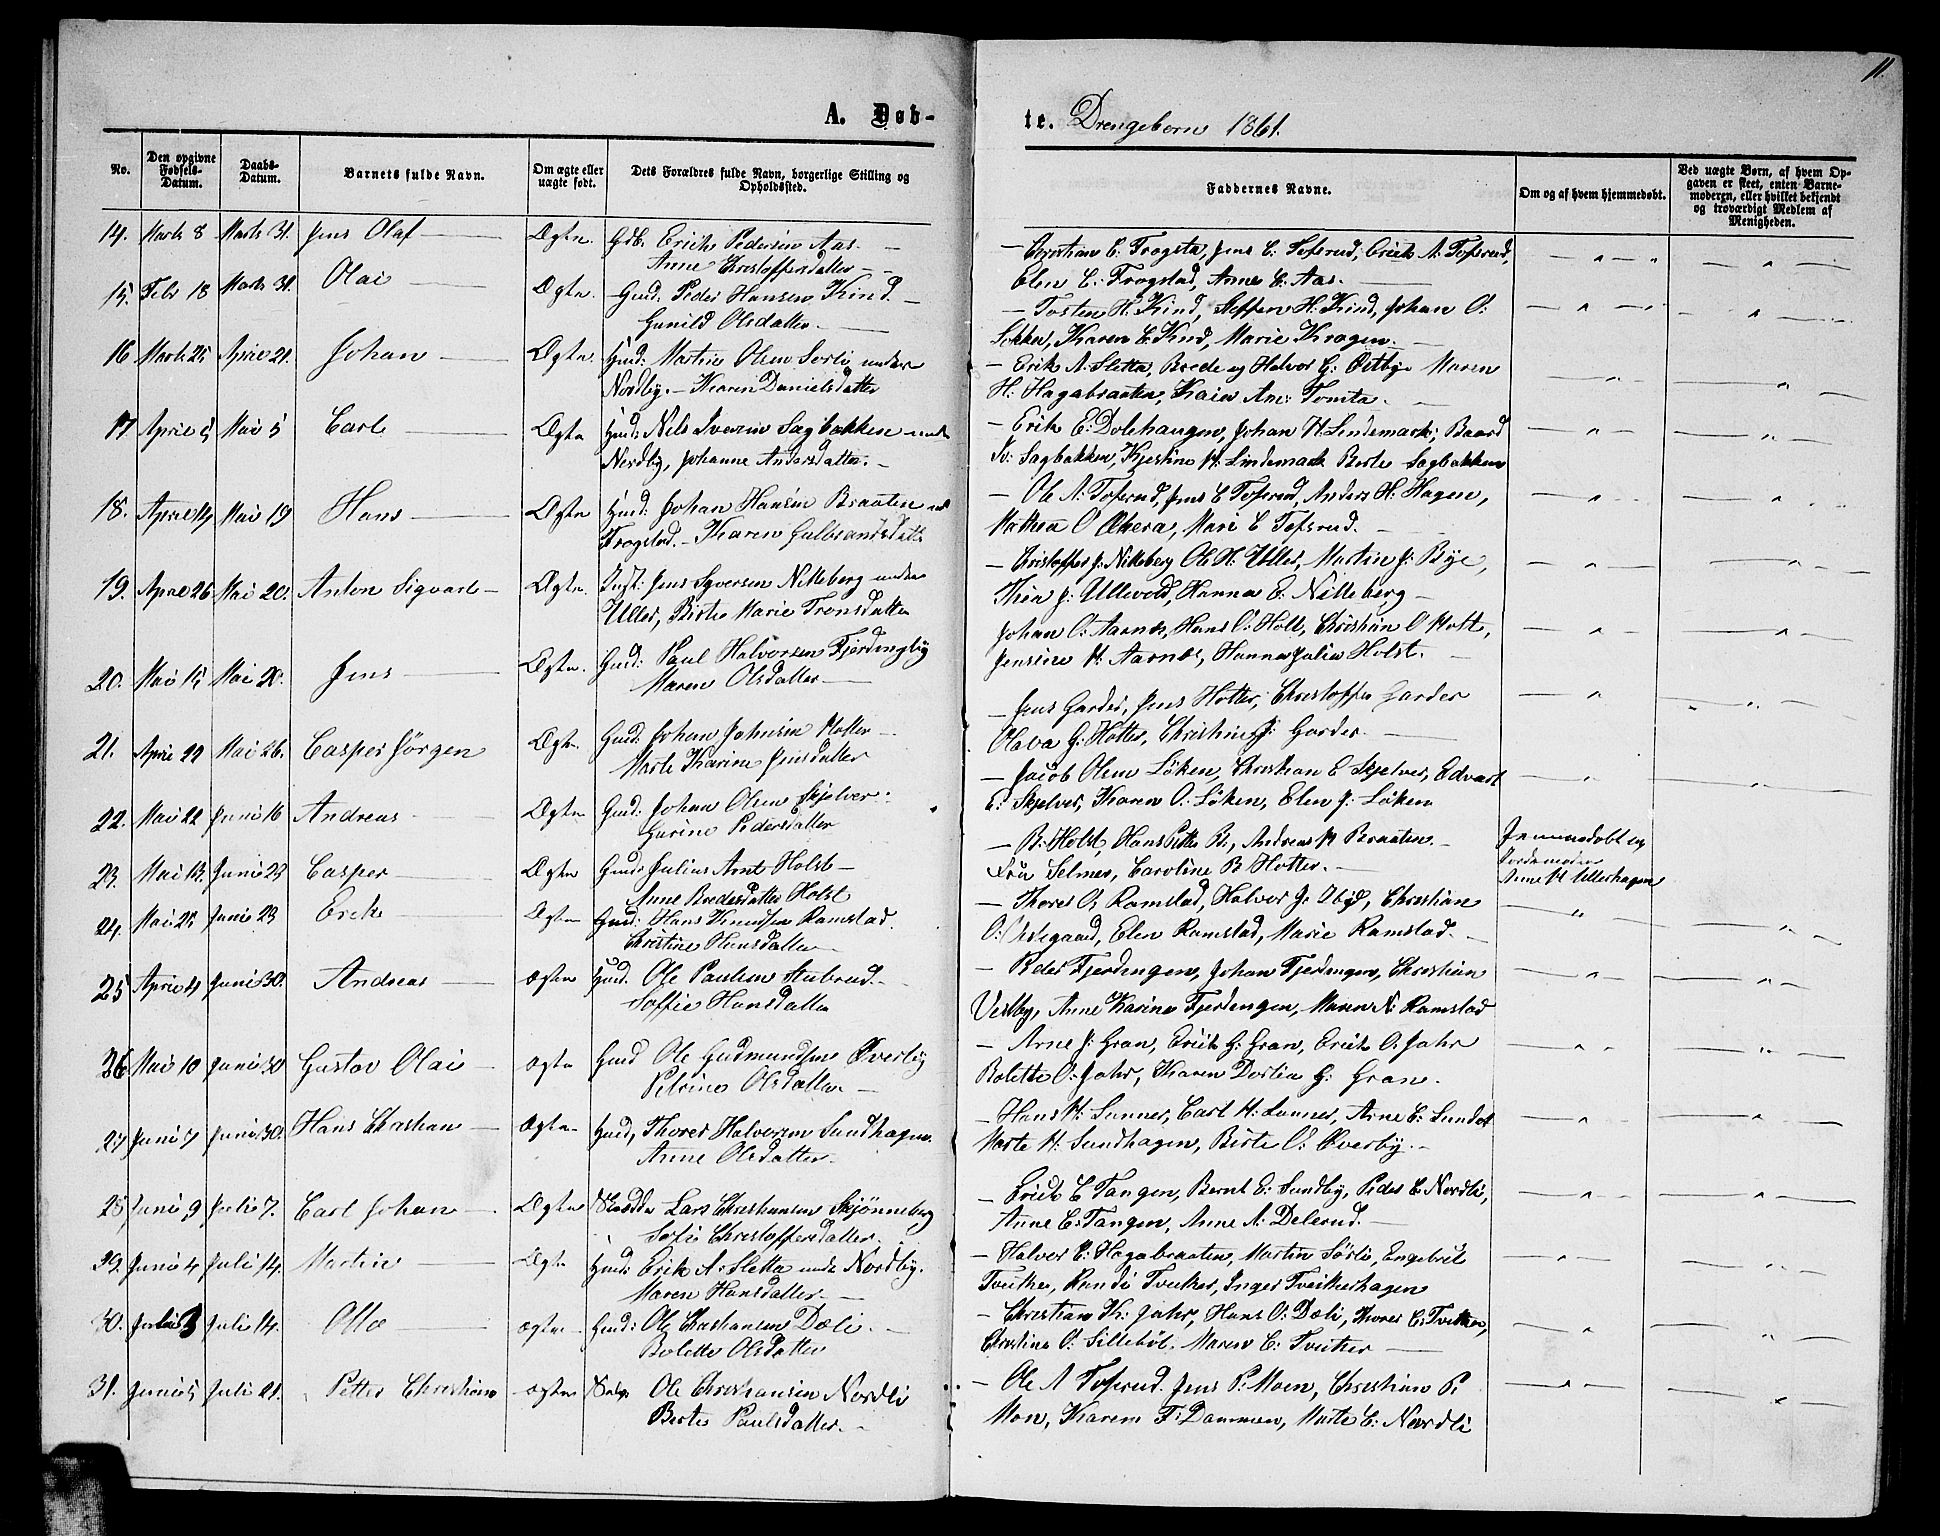 11.
A. Døb-
te. Drengebørn 1861.
No.
Den opgivne Fødsels-Datum.
Daabs-Datum.
Barnets fulde Navn.
Om ægte eller uægte født.
Dets Forældres fulde Navn, borgerlige Stilling og Opholdssted.
Faddernes Navne.
Om og af hvem hjemmedøbt.
Ved uægte Børn, af hvem Opgaven er skeet, enten Barnemoderen, eller hvilket bekjendt og troværdigt Medlem af Menigheden.
14. Marts 8 Marts 31. Jens Olaf — Ægte. Gdb. Erik Pedersen Aas. —
Anne Christoffersdatter —
— Christian E. Frogsta, Jens E. Toferud, Erick A. Toferud,
Elen E. Frogstad, Anne E. Aas. —
15. Febr 18 Marts 31. Olai — Ægte. Huusd. Peder Hansen Kind —
Gunild Olsdatter. —
— Tosten H. Kind, Steffen H. Kind, Johan O.
Løkken, Karen E. Kind, Marie Kragen. —
16 Marts 25 April 21. Johan — Ægte. Huusd: Martin Olsen Sørli under
Nordby. — Karen Danielsdatter
— Erik A. Sletta, Brede og Halvor G. Østbye Maren
H: Hagabraaten, Kaia An: Tomta. —
17 April 5 Mai 5 Carl — Ægte Huusd: Nils Iversen Sagbakken under
Nordby, Johanne Andersdatter. —
— Erik E. Dolehaugen, Johan H. Lindemark, Baard
Iv: Sagbakken, Kjestine H. Lindemark Berte Sagbakken
18. April 14 Mai 19 Hans — Ægte Huusd: Johan Hansen Braaten und
Frogstad. — Karen Gulbrandsdatt
— Ole A. Toferud, Jens E Toferud, Anders H. Hagen,
Mathea O Økern, Mari E Tofsrud. —
19. April 26 Mai 20. Anton Sigvart — Ægte. Inst. Jens Syversen Nikkeberg under
Uller, Birte Marie Tronsdatter
— Cristoffer J. Nikkeberg Ole H. Uller, Martin J. Bye,
Thea J: Ullevold, Hanna E. Nikkeberg —
20. Mai 15 Mai 20. Jens — Ægte. Huusd: Paul Halvorsen Fjerdingby
Maren Olsdatter —
Johan O. Aarnes, Hans O: Holt, Christian O Holt,
Jensine H. Aarnes, Hanna Julia Holst. —
21. April 29 Mai 26. Casper Jørgen Ægte. Huusd: Johan Johnsen Hotter —
Marte Karine Jensdatter
— Jens Garder, Jens Hotter, Christoffer Garder
Olava G. Hotter, Christine J. Garder. —
22. Mai 22 Juni 16 Andreas Ægte Huusd: Johan Olsen Skjelver.
Gurine Pedersdatter
— Jacob Olsen Løken, Christian E Skjelver, Edvart
E. Skjelver, Karen O. Løken, Elen J. Løken
23. Mai 13. Juni 23 Casper — Ægte Huusd: Julius Arnt Holst —
Anne Bredesdatter Holst
— B. Holst, Hans Petter B., Andreas H Braaten. —
Fru Selmer, Caroline B Hotter. —
Hjemmedøbt af
Jordemoder
Anne H Ullerhagen
24. Mai 25 Juni 23 Erik — Ægte Huusd: Hans Knudsen Ramstad.
Christine Hansdatter
— Thores O. Ramstad, Halvor J. Obÿe, Christian
O. Ødegaard, Elen Ramstad, Marie Ramstad. —
25 April 4 Juni 30. Andreas — ægte Huusd. Ole Paulsen Stubrud. —
Soffie Hansdatter
— Peder Fjerdingen, Johan Fjerdingen, Christian
Vestby, Anne Karine Fjerdingen, Maren N. Ramstad
26 Mai 10 Juni 30 Gustav Olai — ægte Huusd Ole Gudmundsen Øverby
Petrine Olsdatter —
— Arne J. Gran, Erik G. Gran, Erick O. Jahr
Bolette O. Jahr, Karen Dortea G. Gran.
27 Juni 7 Juni 30. Hans Christian — Ægte — Huusd, Thores Halvorsen Sundhagen.
Anne Olsdatter. —
— Hans H: Sunner, Carl H. Sunner, Arne E. Sundet
Marte H. Sundhagen, Birte O. Øverby. —
28 Juni 9 Julie 7. Carl Johan — Ægte Skrædder Lars Christiansen Skjønneberg
Sofie Christoffersdatter. —
— Erick E Tangen, Bernt E. Sundby, Peder E. Nordli,
Anne E. Tangen, Anne A. Delerud. —
29. Juni 4 Juli 14. Martin — Ægte Huusd: Erik A. Sletta under Nordby.
Maren Hansdatter. —
— Halvor E: Hagabraaten, Martin Sørli, Engebrit
Tveiter, Randi Tveiter, Inger Tveiterhagen
30. Juli 3 Juli 14. Otto — ægte — Huusd: Ole Christiansen Dæli. —
Bolette Olsdatter
— Christian K: Jahr, Hans O. Dæli, Thores E. Tveiter,
Christine O. Sillebøl, Maren E. Tveiter —
31. Juni 5 Juli 21. Petter Christian ægte Ole Christiansen Nordli
Berte Paulsdatter. —
— Ole A Toferud. Jens P. Moen, Christian P.
Mon, Karen F: Dammen, Marte E. Nordli